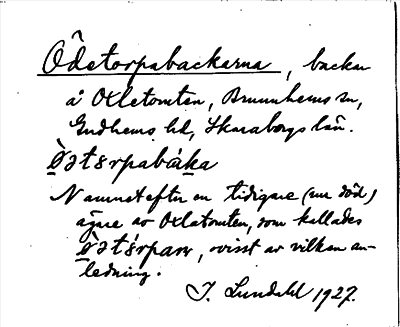 Ödetorpabackarna, backar
å Oxletomten, Brunnhems sn,
Gudhems hd, Skaraborgs län.
ö̀ətɷrpabàka
Namnet efter en tidigare (nu död)
ägare av Oxlatomten, som kallades
ö̀ətɷ́rparn, ovisst av vilken an-
ledning.
J. Lundahl 1927.